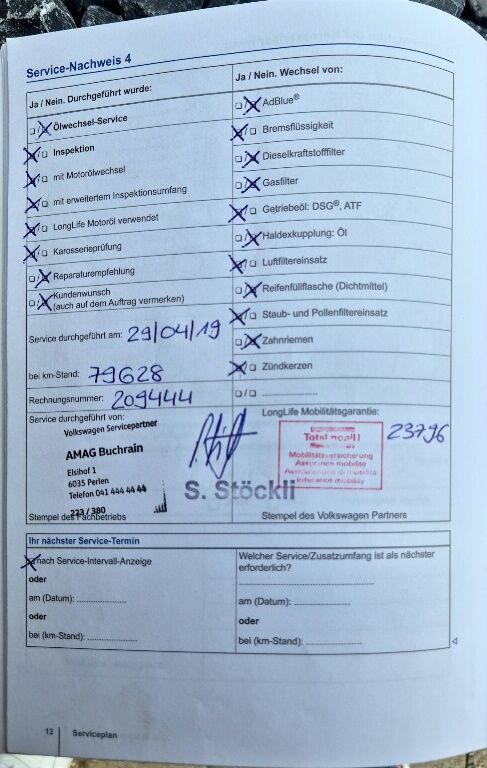 Service-Nachweis 4
Ja / Nein. Durchgeführt wurde:
Ölwechsel-Service
Inspektion
mit Motorölwechsel
mit erweitertem Inspektionsumfang
LongLife Motoröl verwendet
Karosserieprüfung
Reparaturempfehlung
Kundenwunsch
(auch auf dem Auftrag vermerken)
Service durchgeführt am: 29/04/19
bei km-Stand: 79628
Rechnungsnummer: 209444
Service durchgeführt von:
Volkswagen Servicepartner
AMAG Buchrain
Elsihof 1
6035 Perlen
Telefon 041 444 44 44
223 / 380
S. Stöckli
Stempel des Fachbetriebs
Ja / Nein. Wechsel von:
AdBlue®
Bremsflüssigkeit
Dieselkraftstofffilter
Gasfilter
Getriebeöl: DSG®, ATF
Haldexkupplung: Öl
Luftfiltereinsatz
Reifenfüllflasche (Dichtmittel)
Staub- und Pollenfiltereinsatz
Zahnriemen
Zündkerzen
/
LongLife Mobilitätsgarantie:
Totalmobil!
Mobilitätsversicherung
Assurance mobilité
Assicurazione di mobilità
Insurance mobility
23796
Stempel des Volkswagen Partners
Ihr nächster Service-Termin
nach Service-Intervall-Anzeige
oder
am (Datum):
oder
bei (km-Stand):
Welcher Service/Zusatzumfang ist als nächster
erforderlich?
am (Datum):
oder
bei (km-Stand):
12 Serviceplan